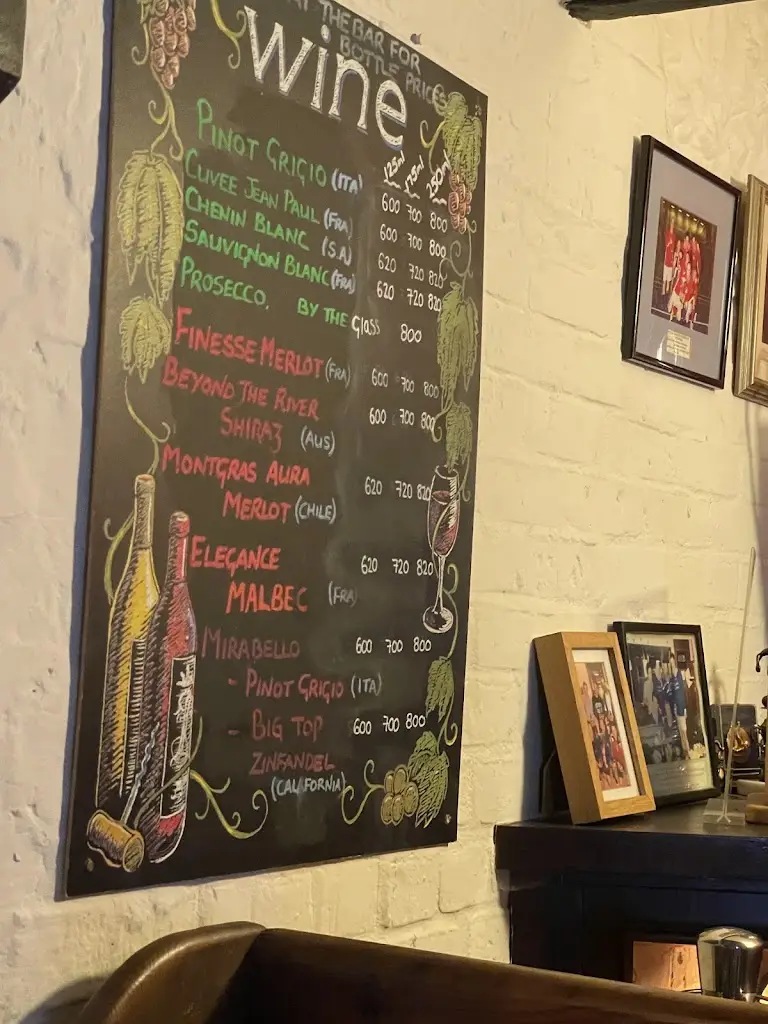 AT THE BAR FOR
BOTTLE PRICES
wine
125ml 175ml 250ml
PINOT GRIGIO (ITA) 600 700 800
CUVEE JEAN PAUL (FRA) 600 700 800
CHENIN BLANC (S.A) 620 720 820
SAUVIGNON BLANC (FRA) 620 720 820
PROSECCO. BY THE GLASS 800
FINESSE MERLOT (FRA) 600 700 800
BEYOND THE RIVER
SHIRAZ (AUS) 600 700 800
MONTGRAS AURA
MERLOT (CHILE) 620 720 820
ELEGANCE
MALBEC (FRA) 620 720 820
MIRABELLO 600 700 800
- PINOT GRIGIO (ITA)
- BIG TOP 600 700 800
ZINFANDEL
(CALIFORNIA)